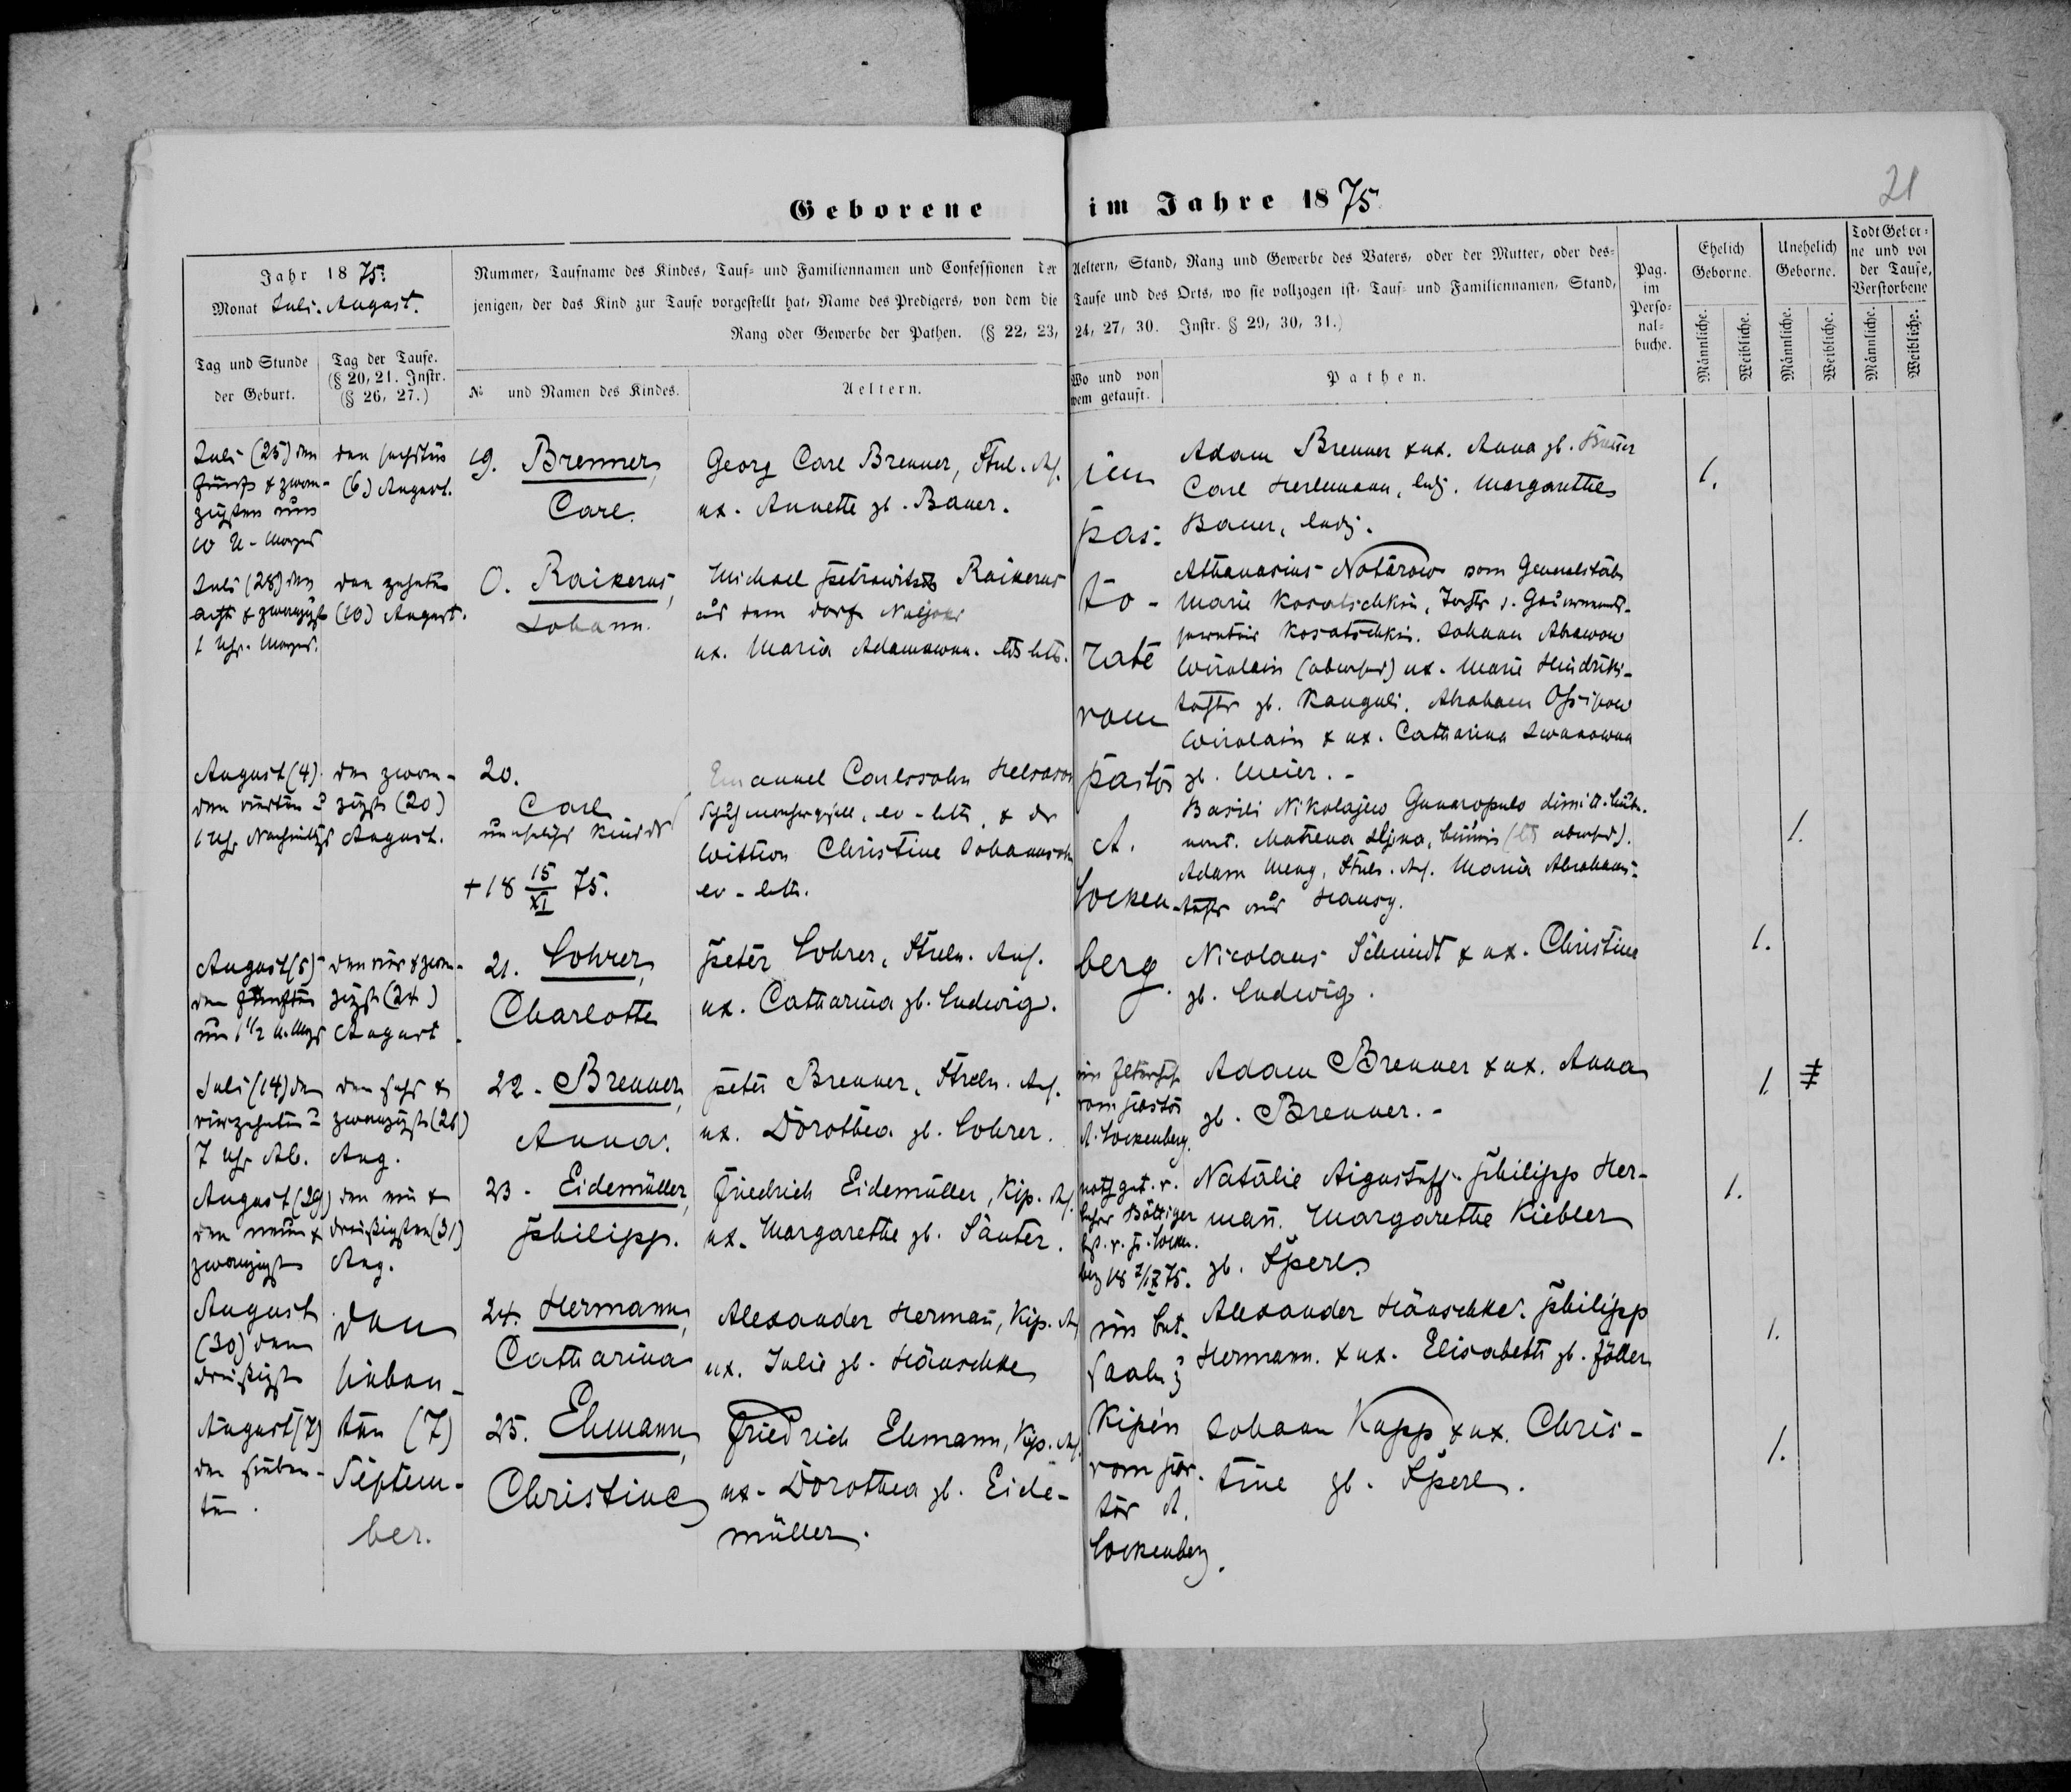 21
Geborene im Jahre 1875.
Jahr 1875.
Monat Juli. August.
Nummer, Taufname des Kindes, Tauf- und Familiennamen und Confessionen der Aeltern, Stand, Rang und Gewerbe des Vaters, oder der Mutter, oder des-
jenigen, der das Kind zur Taufe vorgestellt hat, Name des Predigers, von dem die Taufe und des Orts, wo sie vollzogen ist, Tauf- und Familiennamen, Stand,
Rang oder Gewerbe der Pathen. (§ 22, 23, 24, 27, 30. Instr. § 29, 30, 31.)
Pag. im Perso- nal- buche.
Ehelich Geborne.
Unehelich Geborne.
Todt Gebor- ne und vor der Taufe, Verstorbene
Männliche.
Weibliche.
Männliche.
Weibliche.
Männliche.
Weibliche.
Tag und Stunde
der Geburt.
Tag der Taufe.
(§ 20, 21. Instr.
(§ 26, 27.)
№ und Namen des Kindes.
Aeltern.
Wo und von
wem getauft.
Pathen.
Juli (25) den
fünf & zwan-
zigsten um
10 U. Morgens
den sechsten
(6) August.
19. Brenner,
Carl.
Georg Carl Brenner, Strel. Ans.
ux. Annette gb. Bauer.
im
Pas-
to-
rate
vom
Pastor
A.
Locken-
berg.
Adam Brenner & ux. Anna gb. Bauer
Carl Herlemann, led. Margarethe
Bauer, led.
1.
Juli (28) den
acht & zwanzigst
1 Uhr Morgens.
den zehnten
(10) August.
0. Raikerus,
Johann.
Michael Petrowitsch Raikerus
aus dem Dorfe
ux. Maria Adamowna
Athanasius Notarow vom Generalstabe
Marie Kosatschkin, Tochter d. Gouvernements-
Kosatschkin. Johann Abramow
Wirolain ux. Marie Hindriks-
tochter gb. Kanguli. Abraham Ossipow
Wirolain & ux. Catharina Iwanowna
gb. Meier. -
August (4)
den vierten
1 Uhr Nachmittags
den zwan-
zigst (20)
August.
20.
Carl
unehelicher Kinder
+ 18 15/XI 75.
Emanuel Carlssohn
Schuhmachergesell, ev-luth. & der
Wittwe Christine Johannsohn
ev-luth.
Basili Nikolajew Gunaropulo dimitt. Lieute-
nant. Matrena
Adam Meng, Strel. Ans. Maria Abrahams-
tochter aus
1.
August (5)
den fünften
um 1 1/2 U. Mrgs
den vier & zwan-
zigst (24)
August
21. Lohrer,
Charlotte
Peter Lohrer, Streln. Ans.
ux. Catharina gb. Ludwig.
Nicolaus Schmidt & ux. Christine
gb. Ludwig.
1.
Juli (14) den
vierzehnten
7 Uhr Ab.
den sechs &
zwanzigst (26)
Aug.
22. Brenner,
Anna.
Peter Brenner, Streln. Ans.
ux. Dorothea gb. Lohrer.
vom Pastor
A. Lockenberg.
Adam Brenner & ux. Anna
gb. Brenner. -
1.
August (29)
den neun &
zwanzigst
den ein &
dreißigsten (31)
Aug.
23. Eidemüller,
Philipp.
Friedrich Eidemüller, Kip. Ans.
ux. Margarethe gb. Sauter.
notget. v.
Lehrer Böttiger
best. v. P. Locken-
berg 18 7/IX 75.
Natalie Aigustoff. Philipp Her-
mañ. Margarethe Kiebler
gb. Sperl.
1.
August
(30) den
dreißigst
den
sieben-
ten (7)
Septem-
ber.
24. Hermann,
Catharina
Alexander Hermañ, Kip. Ans.
ux. Julie gb. Hänschke
im Bet-
saale z
Kipen
vom Pas-
tor A.
Lockenberg.
Alexander Hänschke. Philipp
Hermann. & ux. Elisabeth gb. Föller
1.
August (7)
den sieben-
ten.
25. Ehmann,
Christine
Friedrich Ehmann, Kip. Ans.
ux. Dorothea gb. Eide-
müller.
Johann Kapp & ux. Chris-
tine gb. Sperl.
1.